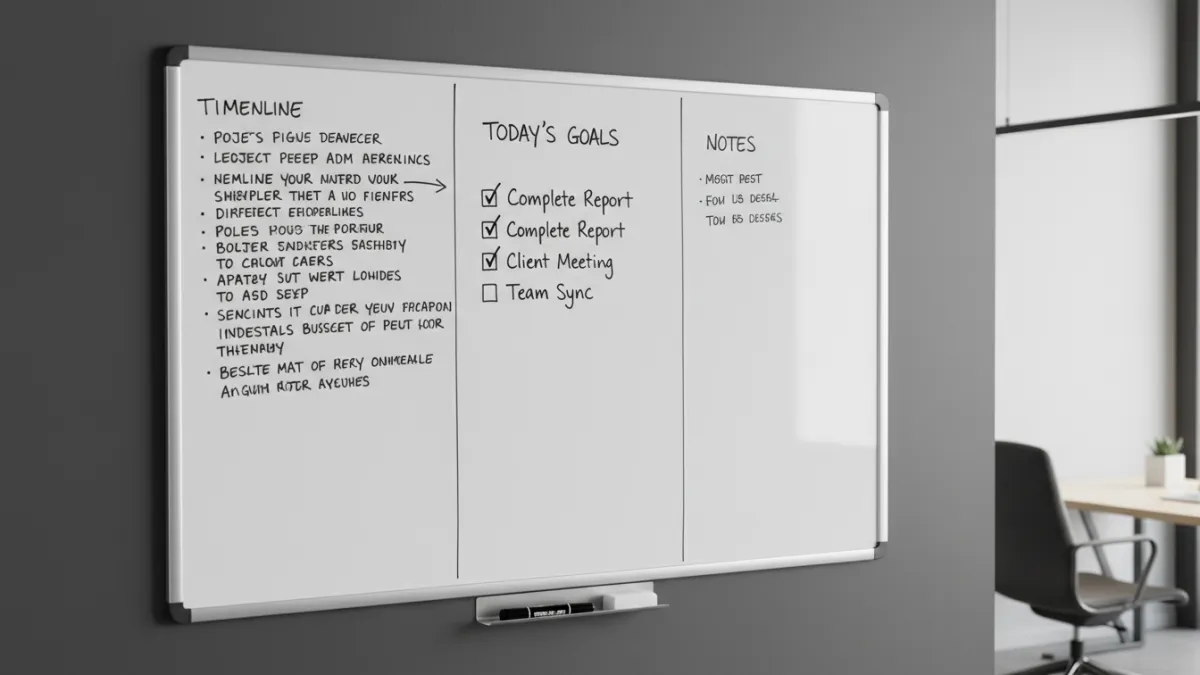 TIMENLINE
• POJE'S PIGUE DEAVECER
• LEOJECT PEEP ADM AERENINCS
• NEMLINE YOUR NNFRD VOUK
SHIEPLER THET A UO FIENFRS
• DIRFETECT
• POLES HOUS THE PORFIUR
• BOLTER SASHBTY
TO CALOUT CAERS
• APATBY SUT WERT LOHIDES
TO ASD SEYP
• SENCINTS IT CUA DER YEUV FRCAPON
INDESTALS BUSSCET OF PEUT
• BESLTE MAT OF RERY
AYEUHES
TODAY'S GOALS
☑ Complete Report
☑ Complete Report
☑ Client Meeting
☐ Team Sync
NOTES
• MEGIT PEST
• FOW US
TOW